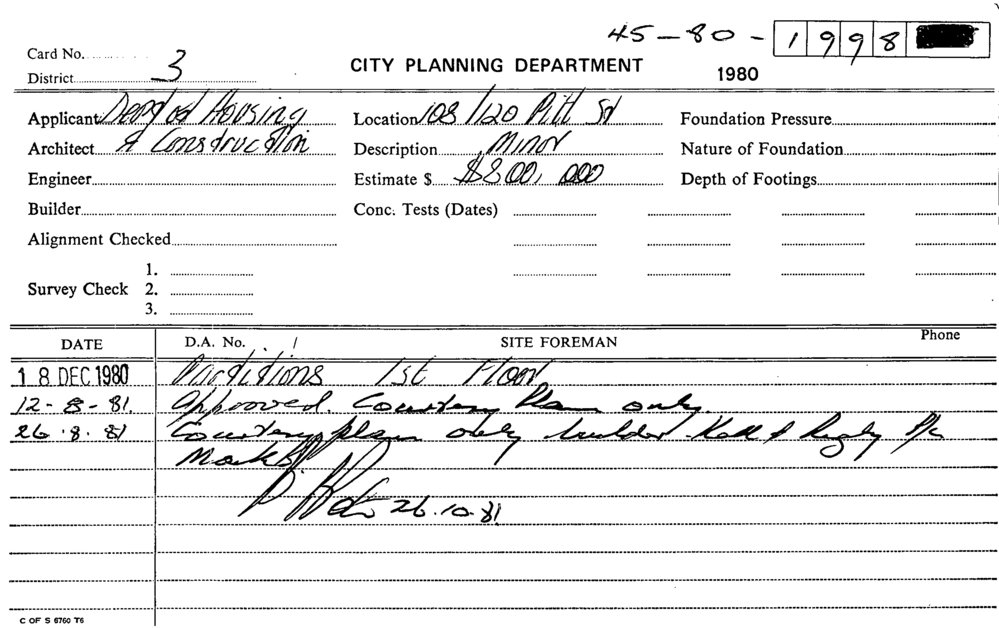 45-80-1998
Card No.
District 3
CITY PLANNING DEPARTMENT
1980
Applicant Dept of Housing
Location 108/120 Pitt St
Foundation Pressure
Architect & Construction
Description Minor
Nature of Foundation
Engineer
Estimate $ $800,000
Depth of Footings
Builder
Conc. Tests (Dates)
Alignment Checked
1.
Survey Check 2.
3.
DATE
D.A. No.
SITE FOREMAN
Phone
18 DEC 1980 Partitions 1st Floor
12-8-81. Approved. Courtesy Plan only.
26.8.81 Courtesy plan only builder Kell & Rigby P/L
26.10.81
C OF S 6760 T6